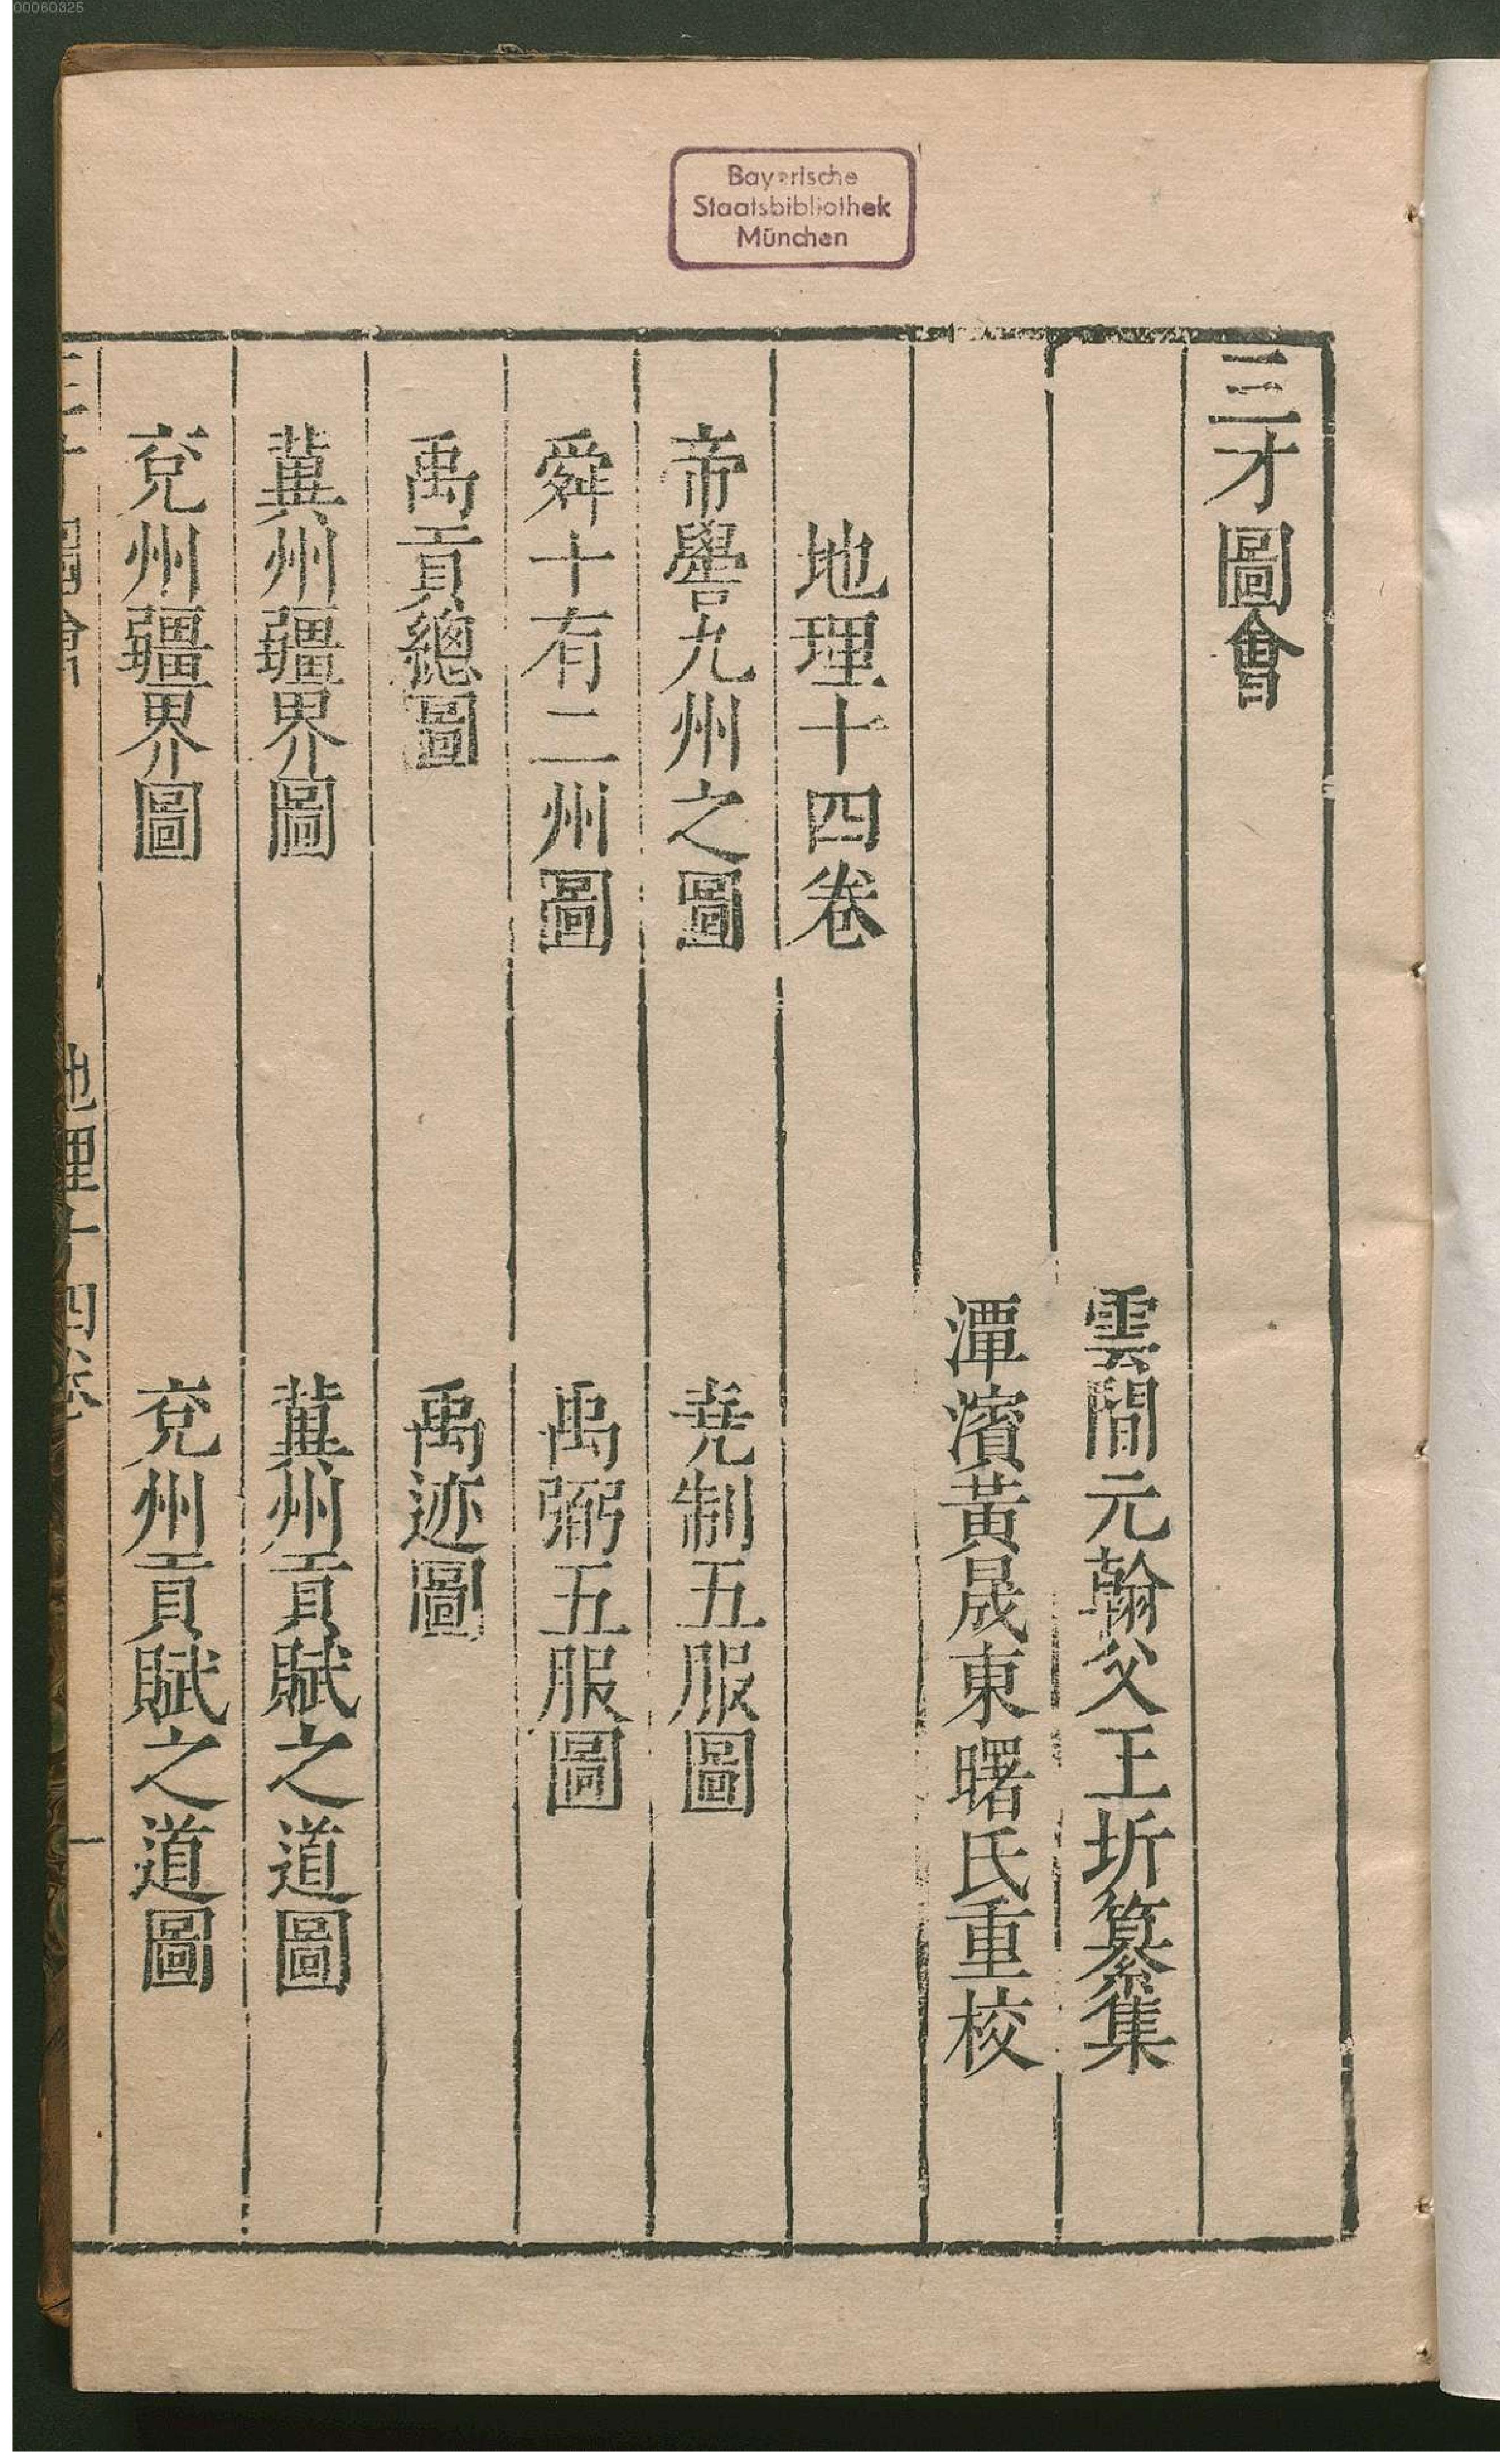 00060325
Bayerische
Staatsbibliothek
München
三才圖會
雲間元翰父王圻纂集
潭濱黃晟東曙氏重校
地理十四卷
帝嚳九州之圖
堯制五服圖
舜十有二州圖
禹弼五服圖
禹貢總圖
禹迹圖
冀州疆界圖
冀州貢賦之道圖
兗州疆界圖
兗州貢賦之道圖
三才圖會
地理十四卷
一